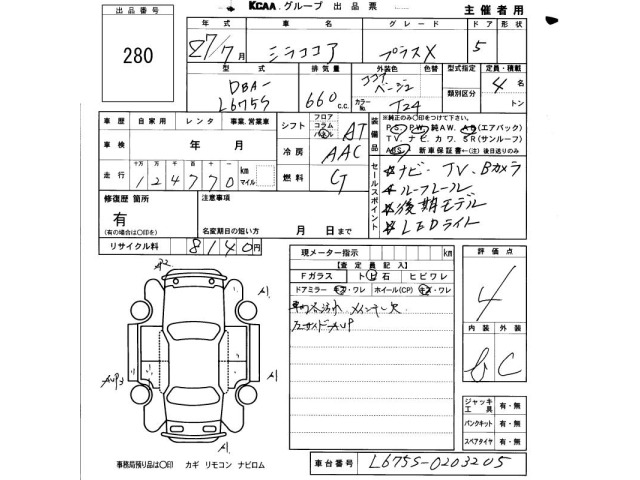 出品番号
280
KCAA.グループ 出品票
主催者用
年式 車名 グレード ドア 形状
27/7月 ミラココア プラスX 5
型式 排気量 外装色 色替 型式指定 定員・積載
DBA-
L675S
660 c.c.
ココアベージュ
カラーNo. T24
類別区分
4名
トン
車歴 自家用 レンタ 事業.営業車
車検 年 月
走行 十万 万 千 百 十 一
124770 km マイル
シフト フロア コラム パネル AT
冷房 AAC
燃料 G
装備品
※純正のみ○印をつけて下さい。
P.S. P.W. 純AW. A.B(エアバック)
T.V. ナビ. カワ. S R(サンルーフ)
A.B.S. 新車保証書←(注)後日送りのみ
セールスポイント
☆ナビ・TV、Bカメラ
☆ルーフレール
☆後期モデル
☆LEDライト
修復歴 箇所
有
(有の場合は○印を)
注意事項
名変期日の短い方 月 日まで
リサイクル料 8140円
現メーター指示 km
【査定員記入】
Fガラス トビ石 ヒビワレ
ドアミラー キズ・ワレ ホイール(CP) キズ・ワレ
車内 汚れ、メインキー欠
評価点
4
内装 外装
C
A2
A1
A1
A1
ジャッキ 工具 有・無
パンクキット 有・無
スペアタイヤ 有・無
事務局預り品は○印 カギ リモコン ナビロム
車台番号 L675S-0203205